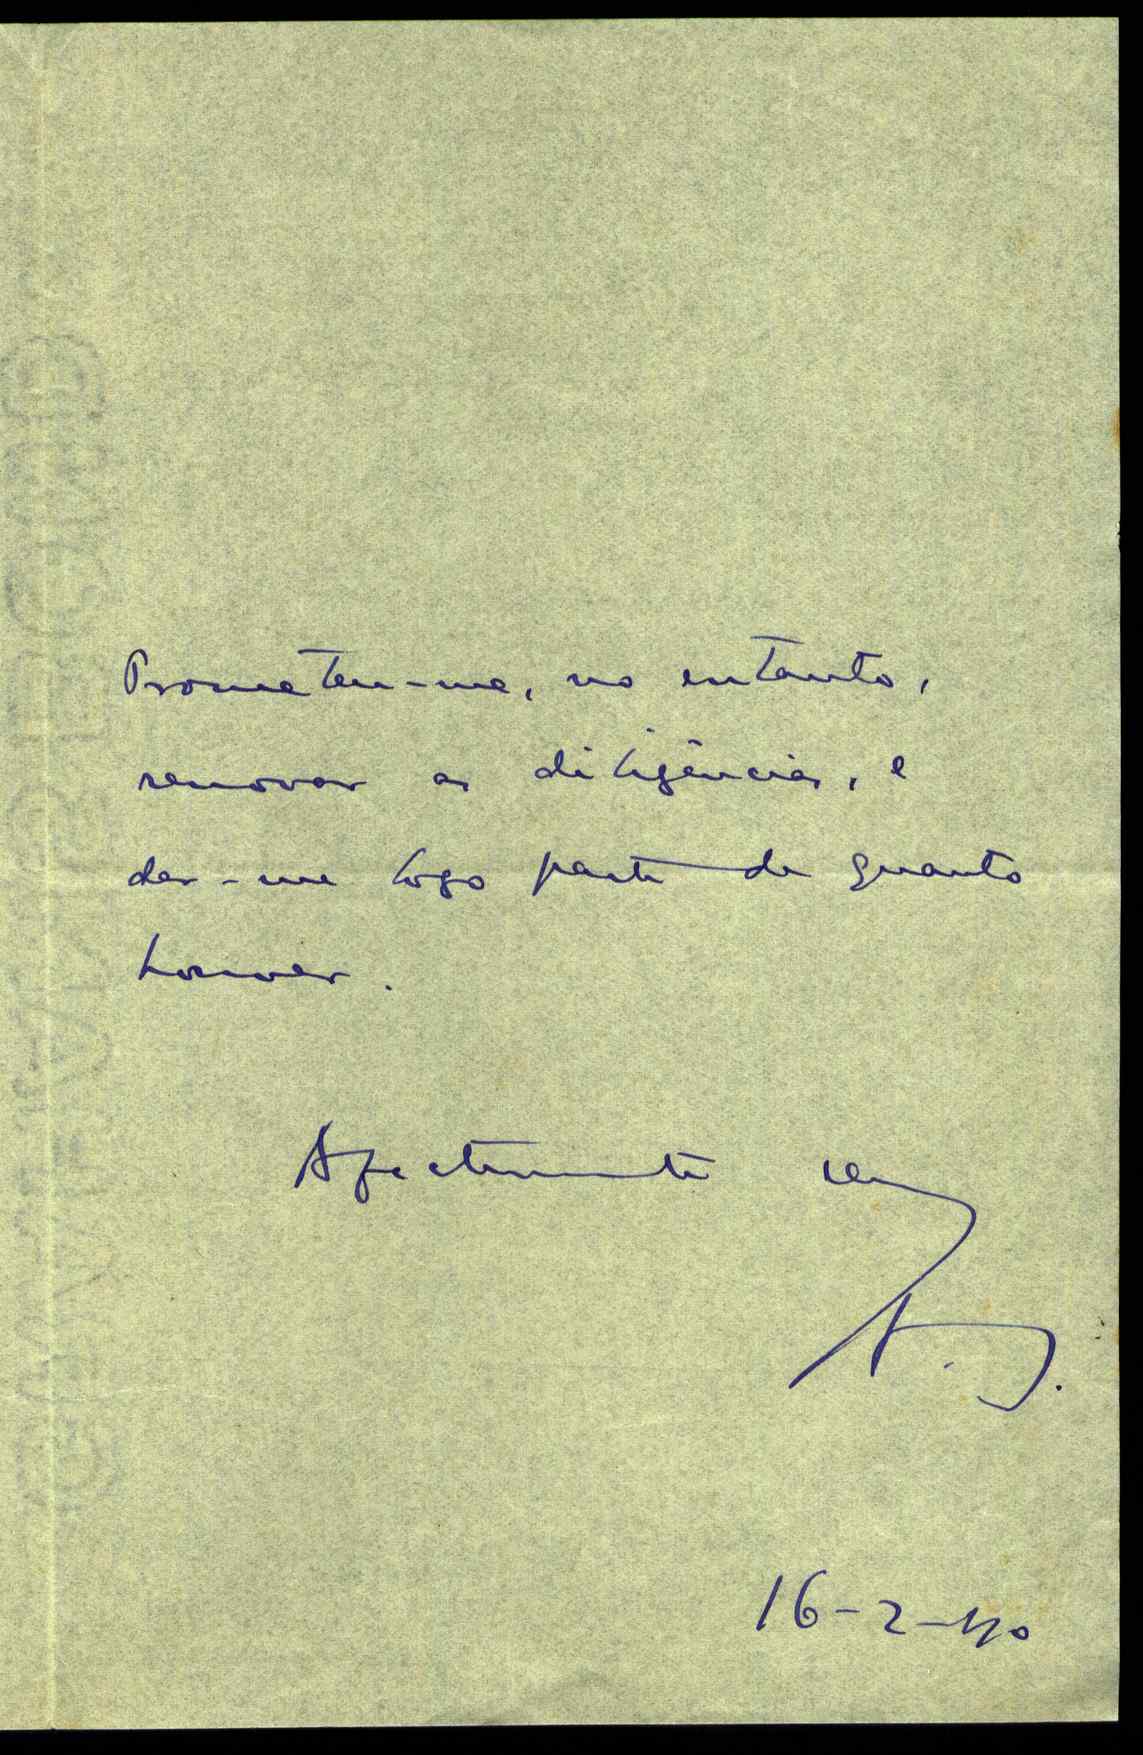 Prometeu-me, no entanto,
renovar as diligências, e
dar-me logo parte de quanto
houver.
Afectuosamente seu
A. J.
16-2-40